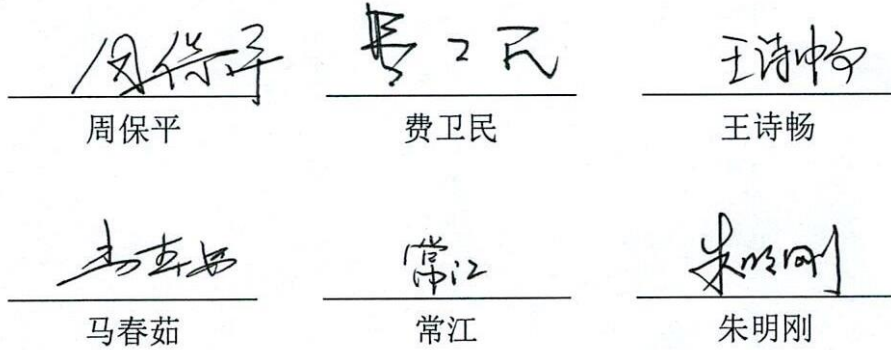 周保平 费卫民 王诗畅
周保平 费卫民 王诗畅
马春茹 常江 朱明刚
马春茹 常江 朱明刚